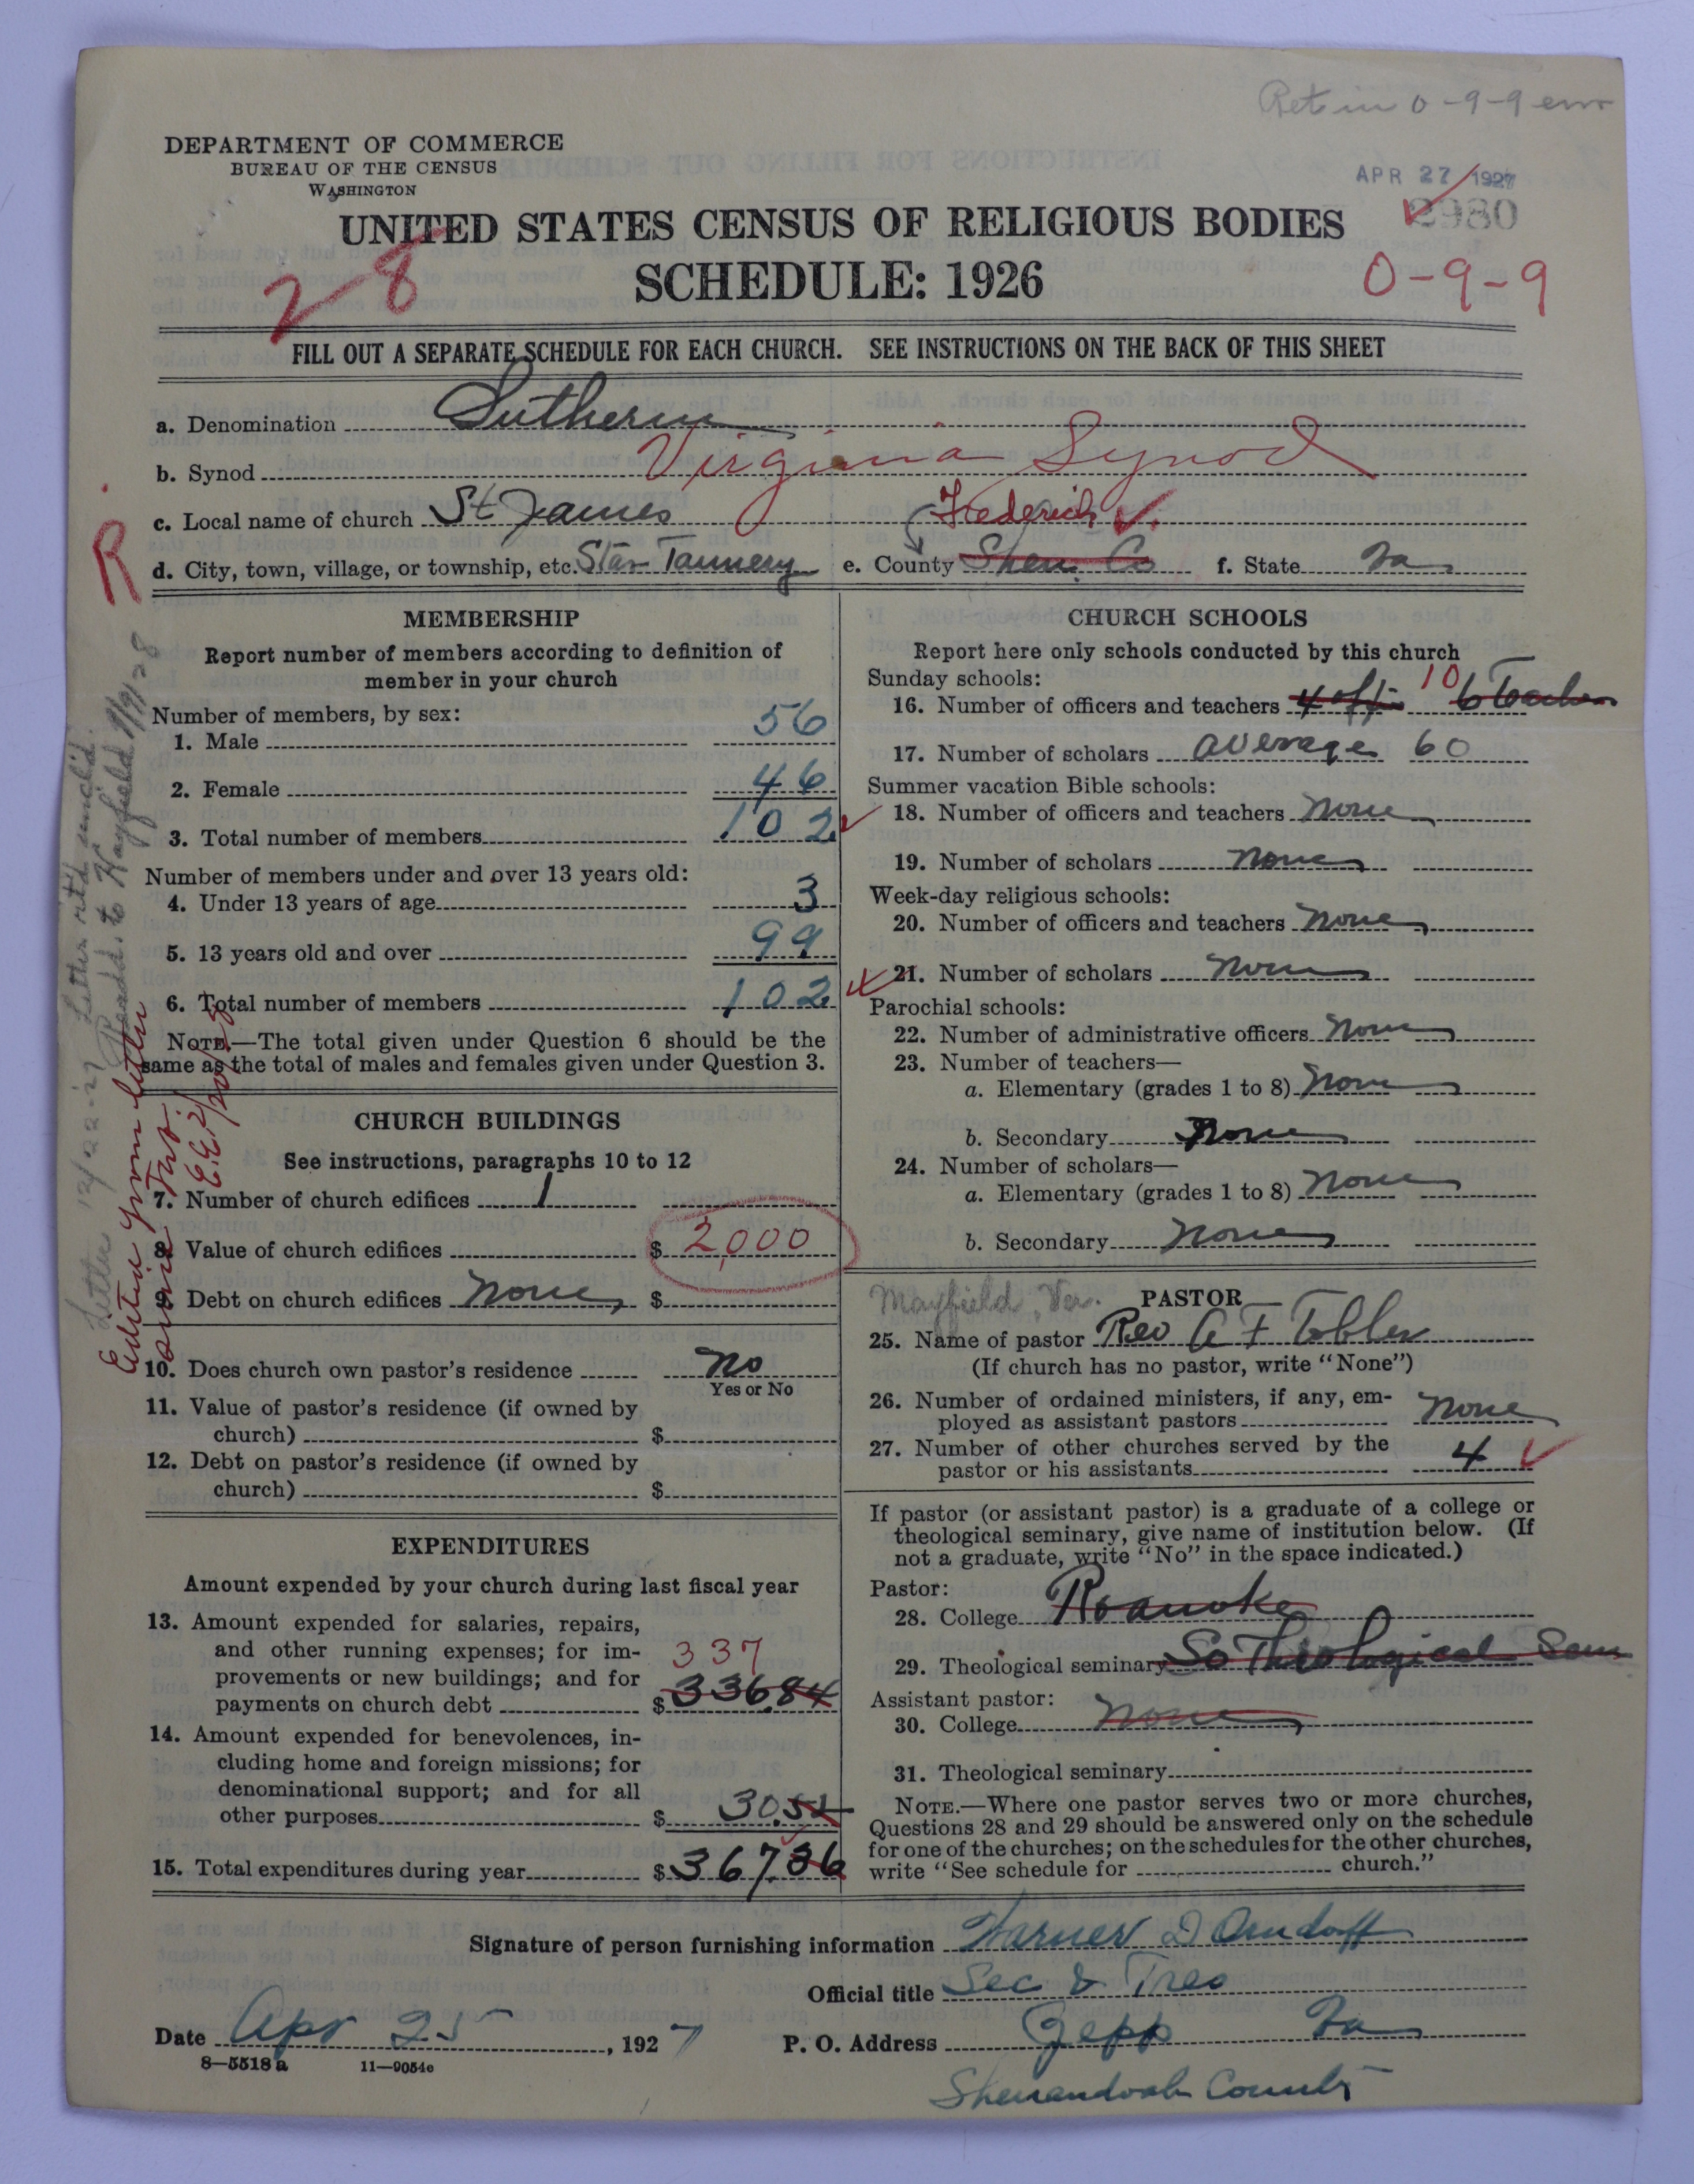 Ret in 0-9-9 env
DEPARTMENT OF COMMERCE
BUREAU OF THE CENSUS
WASHINGTON
APR 27 1927
2980
UNITED STATES CENSUS OF RELIGIOUS BODIES
SCHEDULE: 1926
28
0-9-9
FILL OUT A SEPARATE SCHEDULE FOR EACH CHURCH. SEE INSTRUCTIONS ON THE BACK OF THIS SHEET
a. Denomination Lutheran
b. Synod Virginia Synod
c. Local name of church St James
Frederick
R
d. City, town, village, or township, etc. Star Tannery e. County Shen. Co f. State Va
MEMBERSHIP
Report number of members according to definition of
member in your church
Number of members, by sex:
1. Male 56
2. Female 46
3. Total number of members 102
Number of members under and over 13 years old:
4. Under 13 years of age 3
5. 13 years old and over 99
6. Total number of members 102
NOTE.—The total given under Question 6 should be the
same as the total of males and females given under Question 3.
CHURCH BUILDINGS
See instructions, paragraphs 10 to 12
7. Number of church edifices 1
8. Value of church edifices $ 2,000
9. Debt on church edifices None $
10. Does church own pastor's residence No
Yes or No
11. Value of pastor's residence (if owned by
church) $
12. Debt on pastor's residence (if owned by
church) $
EXPENDITURES
Amount expended by your church during last fiscal year
13. Amount expended for salaries, repairs,
and other running expenses; for im-
provements or new buildings; and for
payments on church debt $ 336.84
337
14. Amount expended for benevolences, in-
cluding home and foreign missions; for
denominational support; and for all
other purposes $ 30.52
15. Total expenditures during year $ 367.36
CHURCH SCHOOLS
Report here only schools conducted by this church
Sunday schools:
10
16. Number of officers and teachers 4 off 6 Teachers
17. Number of scholars average 60
Summer vacation Bible schools:
18. Number of officers and teachers None
19. Number of scholars None
Week-day religious schools:
20. Number of officers and teachers None
21. Number of scholars None
Parochial schools:
22. Number of administrative officers None
23. Number of teachers—
a. Elementary (grades 1 to 8) None
b. Secondary None
24. Number of scholars—
a. Elementary (grades 1 to 8) None
b. Secondary None
Mayfield, Va. PASTOR
25. Name of pastor Rev A F Tobler
(If church has no pastor, write "None")
26. Number of ordained ministers, if any, em-
ployed as assistant pastors None
27. Number of other churches served by the
pastor or his assistants 4
If pastor (or assistant pastor) is a graduate of a college or
theological seminary, give name of institution below. (If
not a graduate, write "No" in the space indicated.)
Pastor:
28. College Roanoke
29. Theological seminary So Theological Sem
Assistant pastor:
30. College None
31. Theological seminary
NOTE.—Where one pastor serves two or more churches,
Questions 28 and 29 should be answered only on the schedule
for one of the churches; on the schedules for the other churches,
write "See schedule for church."
Signature of person furnishing information Warner D Orndoff
Official title Sec & Tres
Date Apr 25, 1927 P. O. Address Zepp Va
8—5518a 11—9054c
Shenandoah County